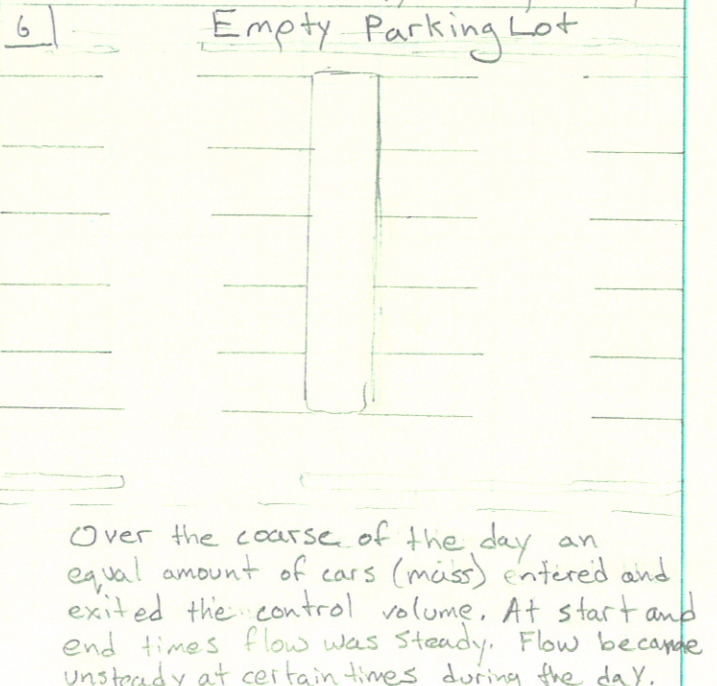 6
Empty Parking Lot
Over the coarse of the day an
equal amount of cars (mass) entered and
exited the control volume. At start and
end times flow was steady. Flow became
unsteady at certain times during the day.